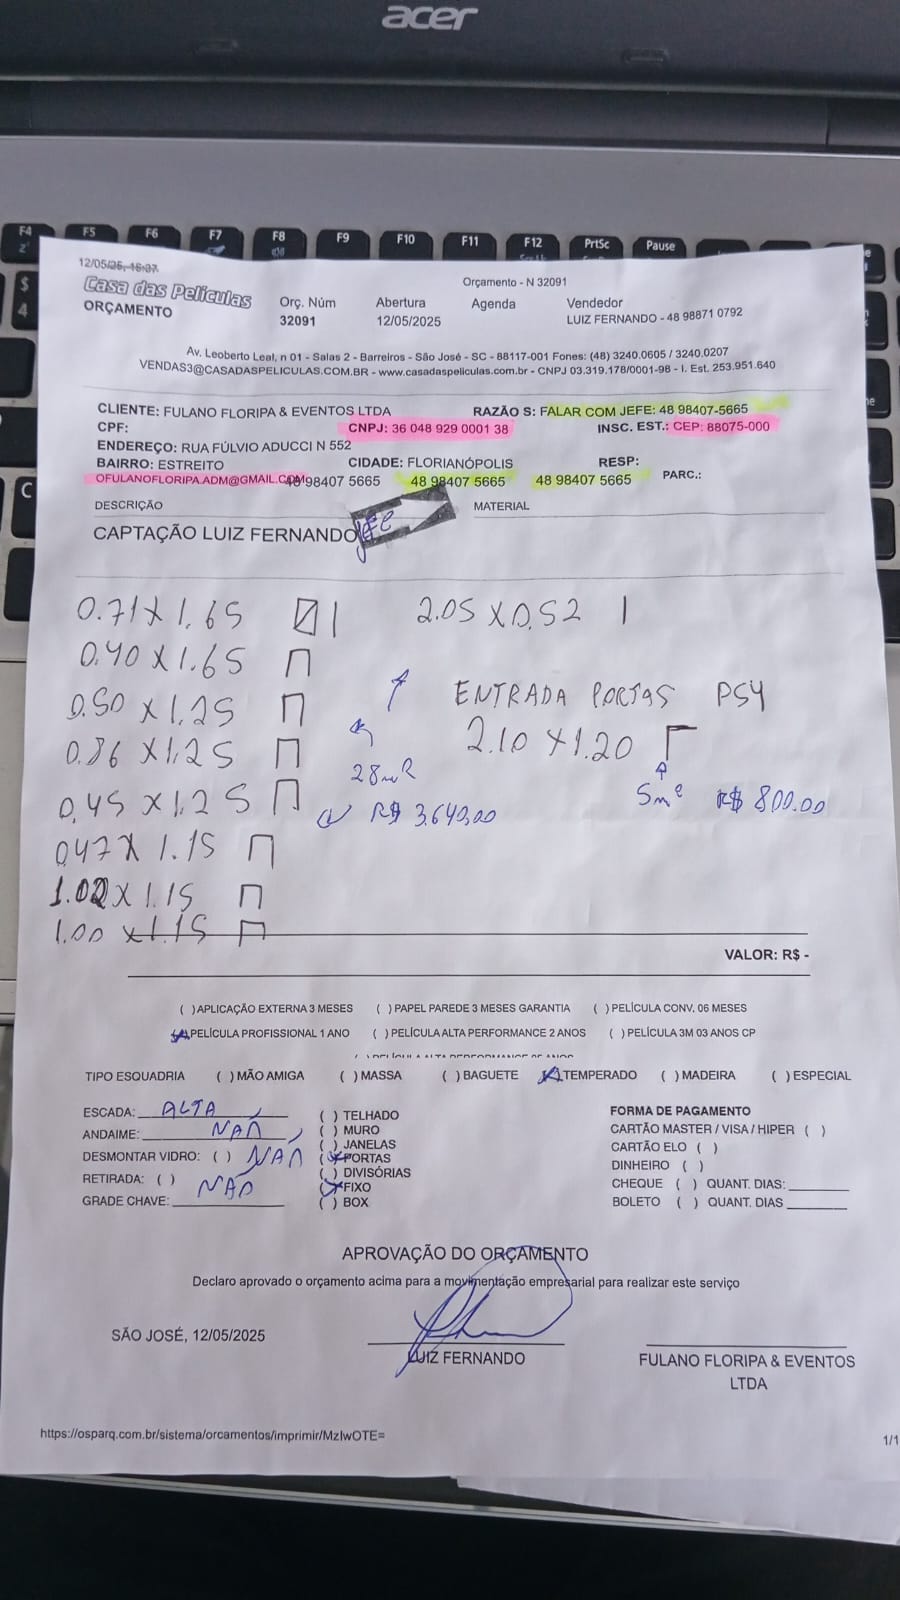 acer
F4 F5 F6 F7 F8 F9 F10 F11 F12 PrtSc Pause
12/05/25, 16:37
Orçamento - N 32091
Casa das Películas
ORÇAMENTO
Orç. Núm Abertura Agenda Vendedor
32091 12/05/2025 LUIZ FERNANDO - 48 98871 0792
Av. Leoberto Leal, n 01 - Salas 2 - Barreiros - São José - SC - 88117-001 Fones: (48) 3240.0605 / 3240.0207
VENDAS3@CASADASPELICULAS.COM.BR - www.casadaspeliculas.com.br - CNPJ 03.319.178/0001-98 - I. Est. 253.951.640
CLIENTE: FULANO FLORIPA & EVENTOS LTDA RAZÃO S: FALAR COM JEFE: 48 98407-5665
CPF: CNPJ: 36 048 929 0001 38 INSC. EST.: CEP: 88075-000
ENDEREÇO: RUA FÚLVIO ADUCCI N 552
BAIRRO: ESTREITO CIDADE: FLORIANÓPOLIS RESP:
OFULANOFLORIPA.ADM@GMAIL.COM 48 98407 5665 48 98407 5665 48 98407 5665 PARC.:
DESCRIÇÃO MATERIAL
CAPTAÇÃO LUIZ FERNANDO
0.71 X 1.65 2.05 X 0.52
0.40 X 1.65
0.50 X 1.25 ENTRADA PORTAS PSY
0.86 X 1.25 2.10 X 1.20
28m2
0.45 X 1.25 R$ 3.640,00 5m2 R$ 800.00
0.47 X 1.15
1.02 X 1.15
1.00 X 1.15
VALOR: R$ -
( )APLICAÇÃO EXTERNA 3 MESES ( )PAPEL PAREDE 3 MESES GARANTIA ( )PELÍCULA CONV. 06 MESES
(X)PELÍCULA PROFISSIONAL 1 ANO ( )PELÍCULA ALTA PERFORMANCE 2 ANOS ( )PELÍCULA 3M 03 ANOS CP
TIPO ESQUADRIA ( )MÃO AMIGA ( )MASSA ( )BAGUETE (X)TEMPERADO ( )MADEIRA ( )ESPECIAL
ESCADA: ALTA
ANDAIME: NAÕ
DESMONTAR VIDRO: ( ) NAÕ
RETIRADA: ( ) NAÕ
GRADE CHAVE:
( )TELHADO
( )MURO
( )JANELAS
(X)PORTAS
( )DIVISÓRIAS
(X)FIXO
( )BOX
FORMA DE PAGAMENTO
CARTÃO MASTER / VISA / HIPER ( )
CARTÃO ELO ( )
DINHEIRO ( )
CHEQUE ( ) QUANT. DIAS:
BOLETO ( ) QUANT. DIAS
APROVAÇÃO DO ORÇAMENTO
Declaro aprovado o orçamento acima para a movimentação empresarial para realizar este serviço
SÃO JOSÉ, 12/05/2025
LUIZ FERNANDO
FULANO FLORIPA & EVENTOS
LTDA
https://osparq.com.br/sistema/orcamentos/imprimir/MzIwOTE=
1/1